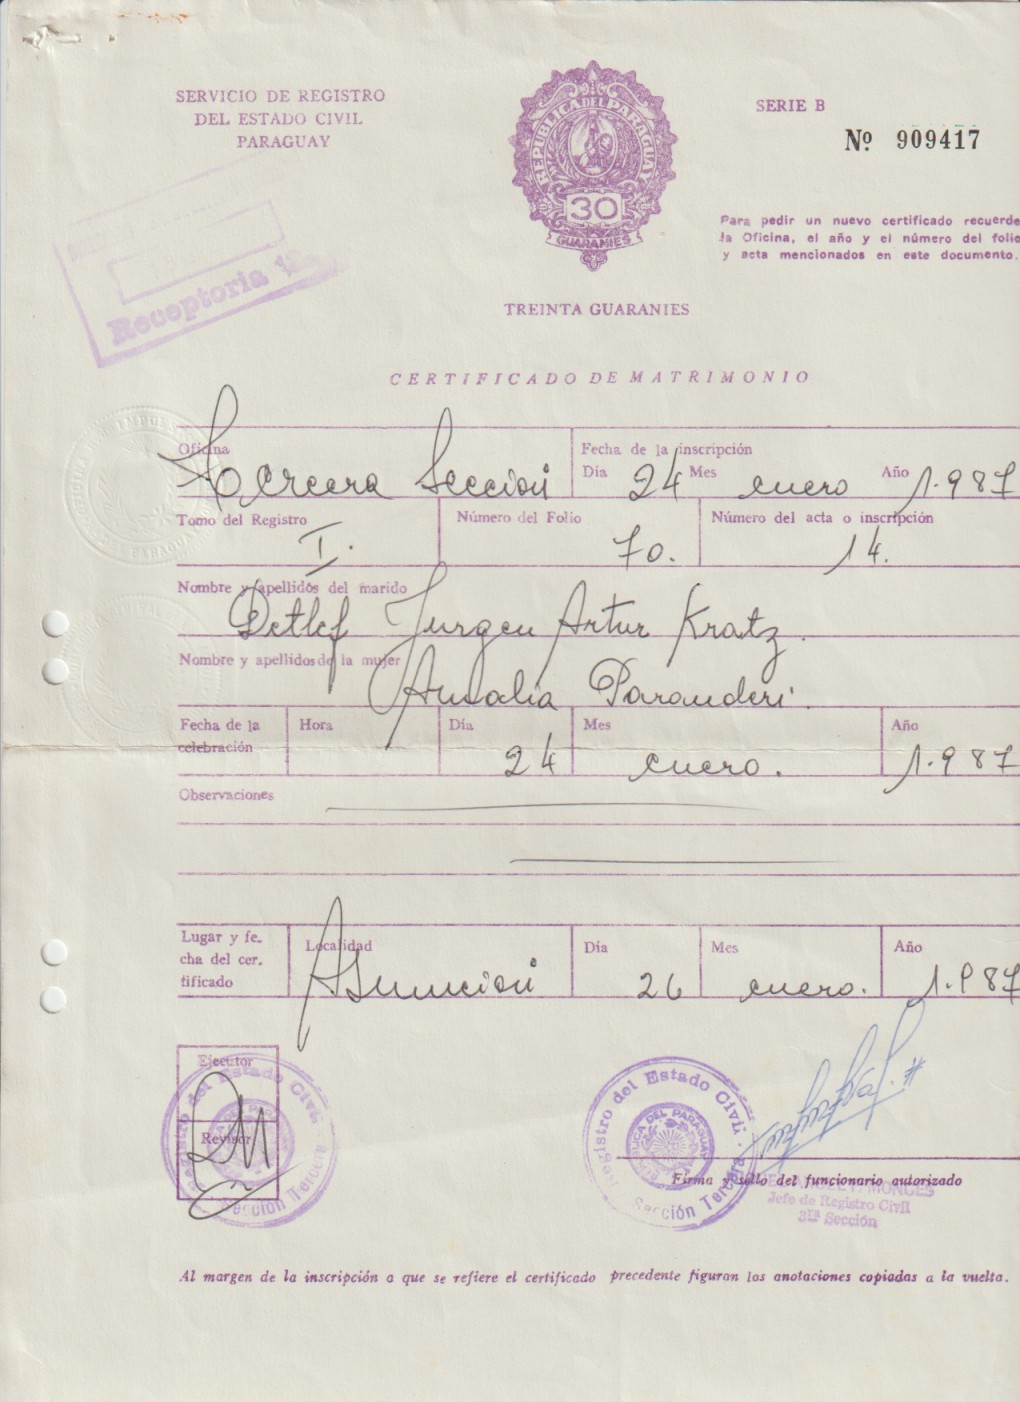 SERVICIO DE REGISTRO
DEL ESTADO CIVIL
PARAGUAY
REPUBLICA DEL PARAGUAY
30
GUARANIES
SERIE B
Nº 909417
Para pedir un nuevo certificado recuerde
la Oficina, el año y el número del folio
y acta mencionados en este documento.
Receptoria
TREINTA GUARANIES
CERTIFICADO DE MATRIMONIO
Oficina
Tercera Sección
Fecha de la inscripción
Día 24 Mes enero Año 1.987
Tomo del Registro
I.
Número del Folio
70.
Número del acta o inscripción
14.
Nombre y apellidos del marido
Detlef Jurgen Artur Kratz.
Nombre y apellidos de la mujer
Analia Paranderi.
Fecha de la
celebración
Hora
Día
24
Mes
enero.
Año
1.987
Observaciones
Lugar y fe-
cha del cer-
tificado
Localidad
Asunción
Día
26
Mes
enero.
Año
1.987
Ejecutor
Revisor
Registro del Estado Civil
Sección Tercera
Registro del Estado Civil.
REPUBLICA DEL PARAGUAY
Sección Tercera
Firma y sello del funcionario autorizado
MONGES
Jefe de Registro Civil
3ra Sección
Al margen de la inscripción a que se refiere el certificado precedente figuran las anotaciones copiadas a la vuelta.